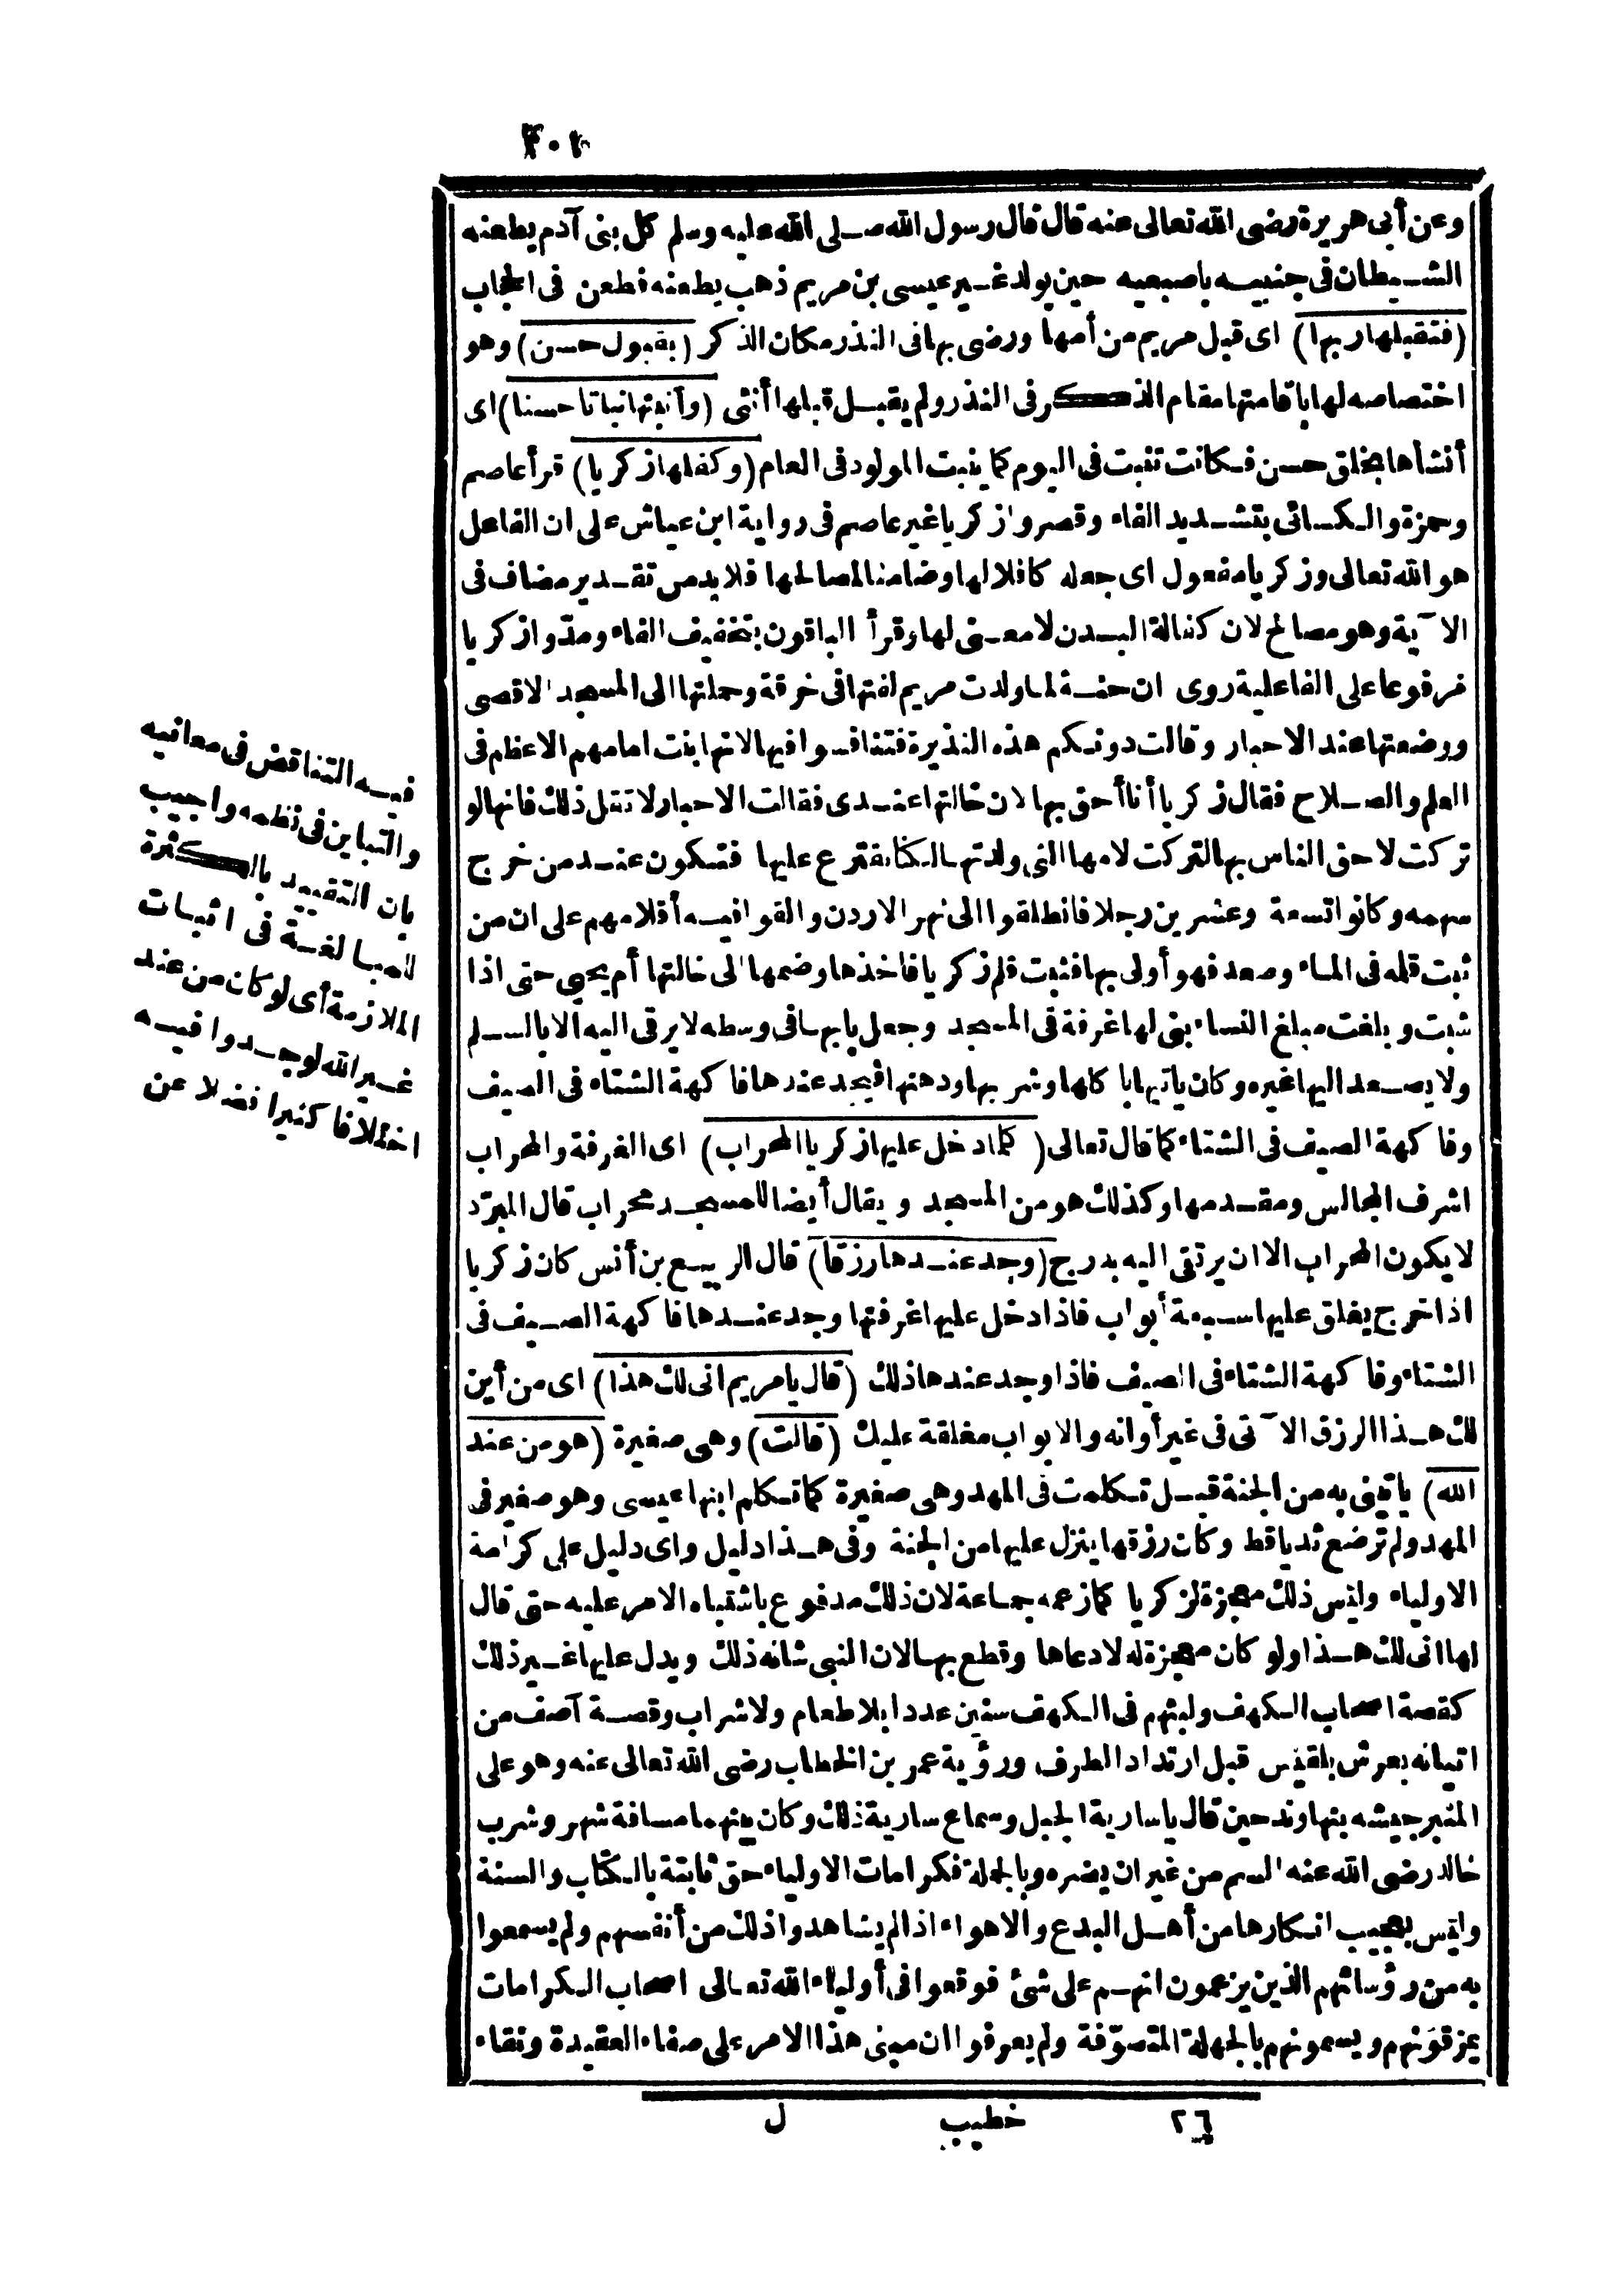 ٢٠١
وعن أبى هريرة رضى الله تعالى عنه قال قال رسول الله صلى الله عليه وسلم كل بنى آدم يطعنه
الشيطان فى جنبيه باصبعيه حين يولد غير عيسى بن مريم ذهب يطعنه فطعن فى الحجاب
(فتقبلها ربها) اى قبل مريم من أمها ورضى بها فى النذر مكان الذكر (بقبول حسن) وهو
اختصاصه لها باقامتها مقام الذكر فى النذر ولم يقبل قبلها أنثى (وأنبتها نباتا حسنا) اى
أنشأها بخلق حسن فكانت تنبت فى اليوم كما ينبت المولود فى العام (وكفلها زكريا) قرأ عاصم
وحمزة والكسائى بتشديد الفاء وقصروا زكريا غير عاصم فى رواية ابن عياش على ان الفاعل
هو الله تعالى وزكريا مفعول اى جعله كافلا لها وضامنا لمصالحها فلا بد من تقدير مضاف فى
الآية وهو مصالح لان كفالة البدن لا معنى لها وقرأ الباقون بتخفيف الفاء ومدّوا زكريا
مرفوعا على الفاعلية روى ان حنة لما ولدت مريم لفتها فى خرقة وحملتها الى المسجد الاقصى
ووضعتها عند الاحبار وقالت دونكم هذه النذيرة فتنافسوا فيها لانها بنت امامهم الاعظم فى
العلم والصلاح فقال زكريا أنا أحق بها لان خالتها عندى فقالت الاحبار لا تقل ذلك فانها لو
تركت لاحق الناس بها لتركت لامها التى ولدتها لكنا نقترع عليها فتكون عند من خرج
سهمه وكانوا تسعة وعشرين رجلا فانطلقوا الى نهر الاردن والقوا فيه أقلامهم على ان من
ثبت قلمه فى الماء وصعد فهو أولى بها فثبت قلم زكريا فاخذها وضمها الى خالتها أم يحيى حتى اذا
شبت وبلغت مبلغ النساء بنى لها غرفة فى المسجد وجعل بابها فى وسطه لا يرقى اليه الا بالسلم
ولا يصعد اليها غيره وكان ياتيها باكلها وشربها ودهنها فيجد عندها فاكهة الشتاء فى الصيف
وفاكهة الصيف فى الشتاء كما قال تعالى (كلما دخل عليها زكريا المحراب) اى الغرفة والمحراب
اشرف المجالس ومقدمها وكذلك هو من المسجد ويقال أيضا للمسجد محراب قال المبرّد
لا يكون المحراب الا ان يرتقى اليه بدرج (وجد عندها رزقا) قال الربيع بن أنس كان زكريا
اذا خرج يغلق عليها سبعة أبواب فاذا دخل عليها غرفتها وجد عندها فاكهة الصيف فى
الشتاء وفاكهة الشتاء فى الصيف فاذا وجد عندها ذلك (قال يا مريم انى لك هذا) اى من أين
لك هذا الرزق الآتى فى غير أوانه والابواب مغلقة عليك (قالت) وهى صغيرة (هو من عند
الله) ياتينى به من الجنة قيل تكلمت فى المهد وهى صغيرة كما تكلم ابنها عيسى وهو صغير فى
المهد ولم ترضع ثديا قط وكان رزقها ينزل عليها من الجنة وفى هذا دليل واى دليل على كرامة
الاولياء وليس ذلك معجزة لزكريا كما زعمه جماعة لان ذلك مدفوع باشتباه الامر عليه حتى قال
لها انى لك هذا ولو كان معجزة له لادعاها وقطع بها لان النبى شانه ذلك ويدل عليها غير ذلك
كقصة اصحاب الكهف ولبثهم فى الكهف سنين عددا بلا طعام ولا شراب وقصة آصف من
اتيانه بعرش بلقيس قبل ارتداد الطرف ورؤية عمر بن الخطاب رضى الله تعالى عنه وهو على
المنبر جيشه بنهاوند حين قال يا سارية الجبل وسماع سارية ذلك وكان بينهما مسافة شهر وشرب
خالد رضى الله عنه السم من غير ان يضره وبالجملة فكرامات الاولياء حق ثابتة بالكتاب والسنة
وليس بعجيب انكارها من أهل البدع والاهواء اذ لم يشاهدوا ذلك من أنفسهم ولم يسمعوا
به من رؤسائهم الذين يزعمون انهم على شئ فوقعوا فى أولياء الله تعالى اصحاب الكرامات
يمزقونهم ويسمونهم بالجهلة المتصوّفة ولم يعرفوا ان مبنى هذا الامر على صفاء العقيدة ونقاء
فيه التناقض فى معانيه
والتباين فى نظمه واجيب
بان التقييد بالكثرة
للمبالغة فى اثبات
الملازمة أى لو كان من عند
غير الله لوجدوا فيه
اختلافا كثيرا فضلا عن
٢٦ خطيب ل